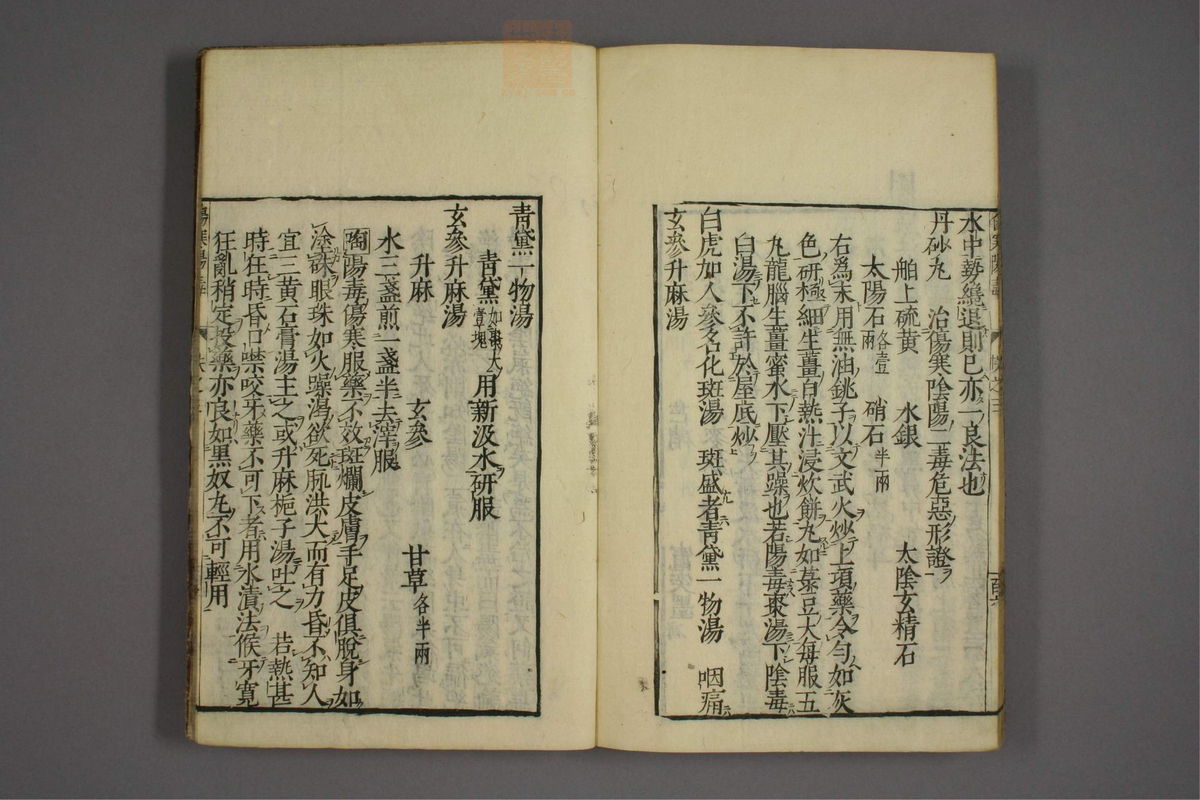 水中勢縋退則已亦一良法也
丹砂丸 治傷寒陰陽二毒危惡形證
舶上硫黃 水銀 太陰玄精石
太陽石各壹兩 硝石半兩
右爲末用無油銚子以文武火炒上項藥令勻如灰
色研極細生薑自然汁浸炊餅丸如菉豆大每服五
丸龍腦生薑蜜水下壓其躁也若陽毒棗湯下陰毒
白湯下不許於屋底炒
白虎加人參名化斑湯 斑盛者靑黛一物湯 咽痛
玄參升麻湯
靑黛一物湯
青黛如棗大壹塊 用新汲水研服
玄參升麻湯
升麻 玄參 甘草各半兩
水三盞煎一盞半去滓服
陶陽毒傷寒服藥不效斑爛皮膚手足皮俱脫身如
塗硃眼珠如火躁渴欲死脈洪大而有力昏不知人
宜三黃石膏湯主之或升麻梔子湯吐之 若熱甚
時狂時昏口噤咬牙藥不可下者用水漬法候牙寬
狂亂稍定投藥亦良如黑奴丸不可輕用